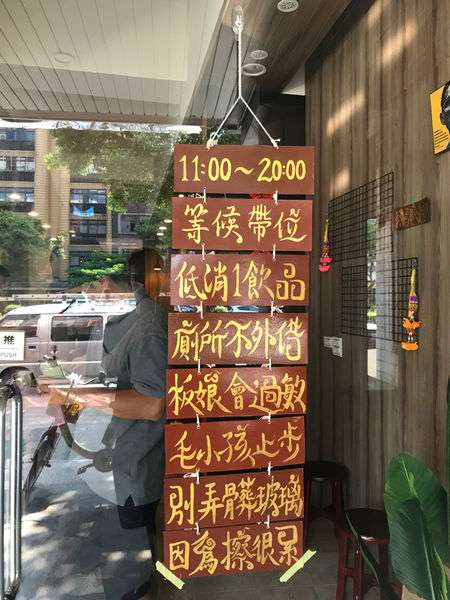 11:00～20:00
等候帶位
低消1飲品
廁所不外借
板娘會過敏
毛小孩止步
別弄髒玻璃
因為擦很累
推
PUSH